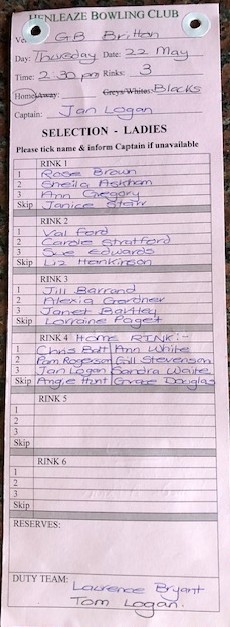 HENLEAZE BOWLING CLUB
GB Britton
Day: Thursday Date: 22 May
Time: 2.30 pm Rinks: 3
Home/Away: Greys/Whites Blacks
Captain: Jan Logan
SELECTION - LADIES
Please tick name & inform Captain if unavailable
RINK 1
1 Rose Brown
2 Sheila Askham
3 Ann Gregory
Skip Janice Starr
RINK 2
1 Val Ford
2 Carole Stratford
3 Sue Edwards
Skip Liz Henkinson
RINK 3
1 Jill Barrand
2 Alexia Gardner
3 Janet Bartley
Skip Lorraine Paget
RINK 4 Home RINK:-
1 Chris Batt Ann White
2 Pam Rogerson Gill Stevenson
3 Jan Logan Sandra Waite
Skip Angie Hunt Grace Douglas
RINK 5
1
2
3
Skip
RINK 6
1
2
3
Skip
RESERVES:
DUTY TEAM: Laurence Bryant
Tom Logan.